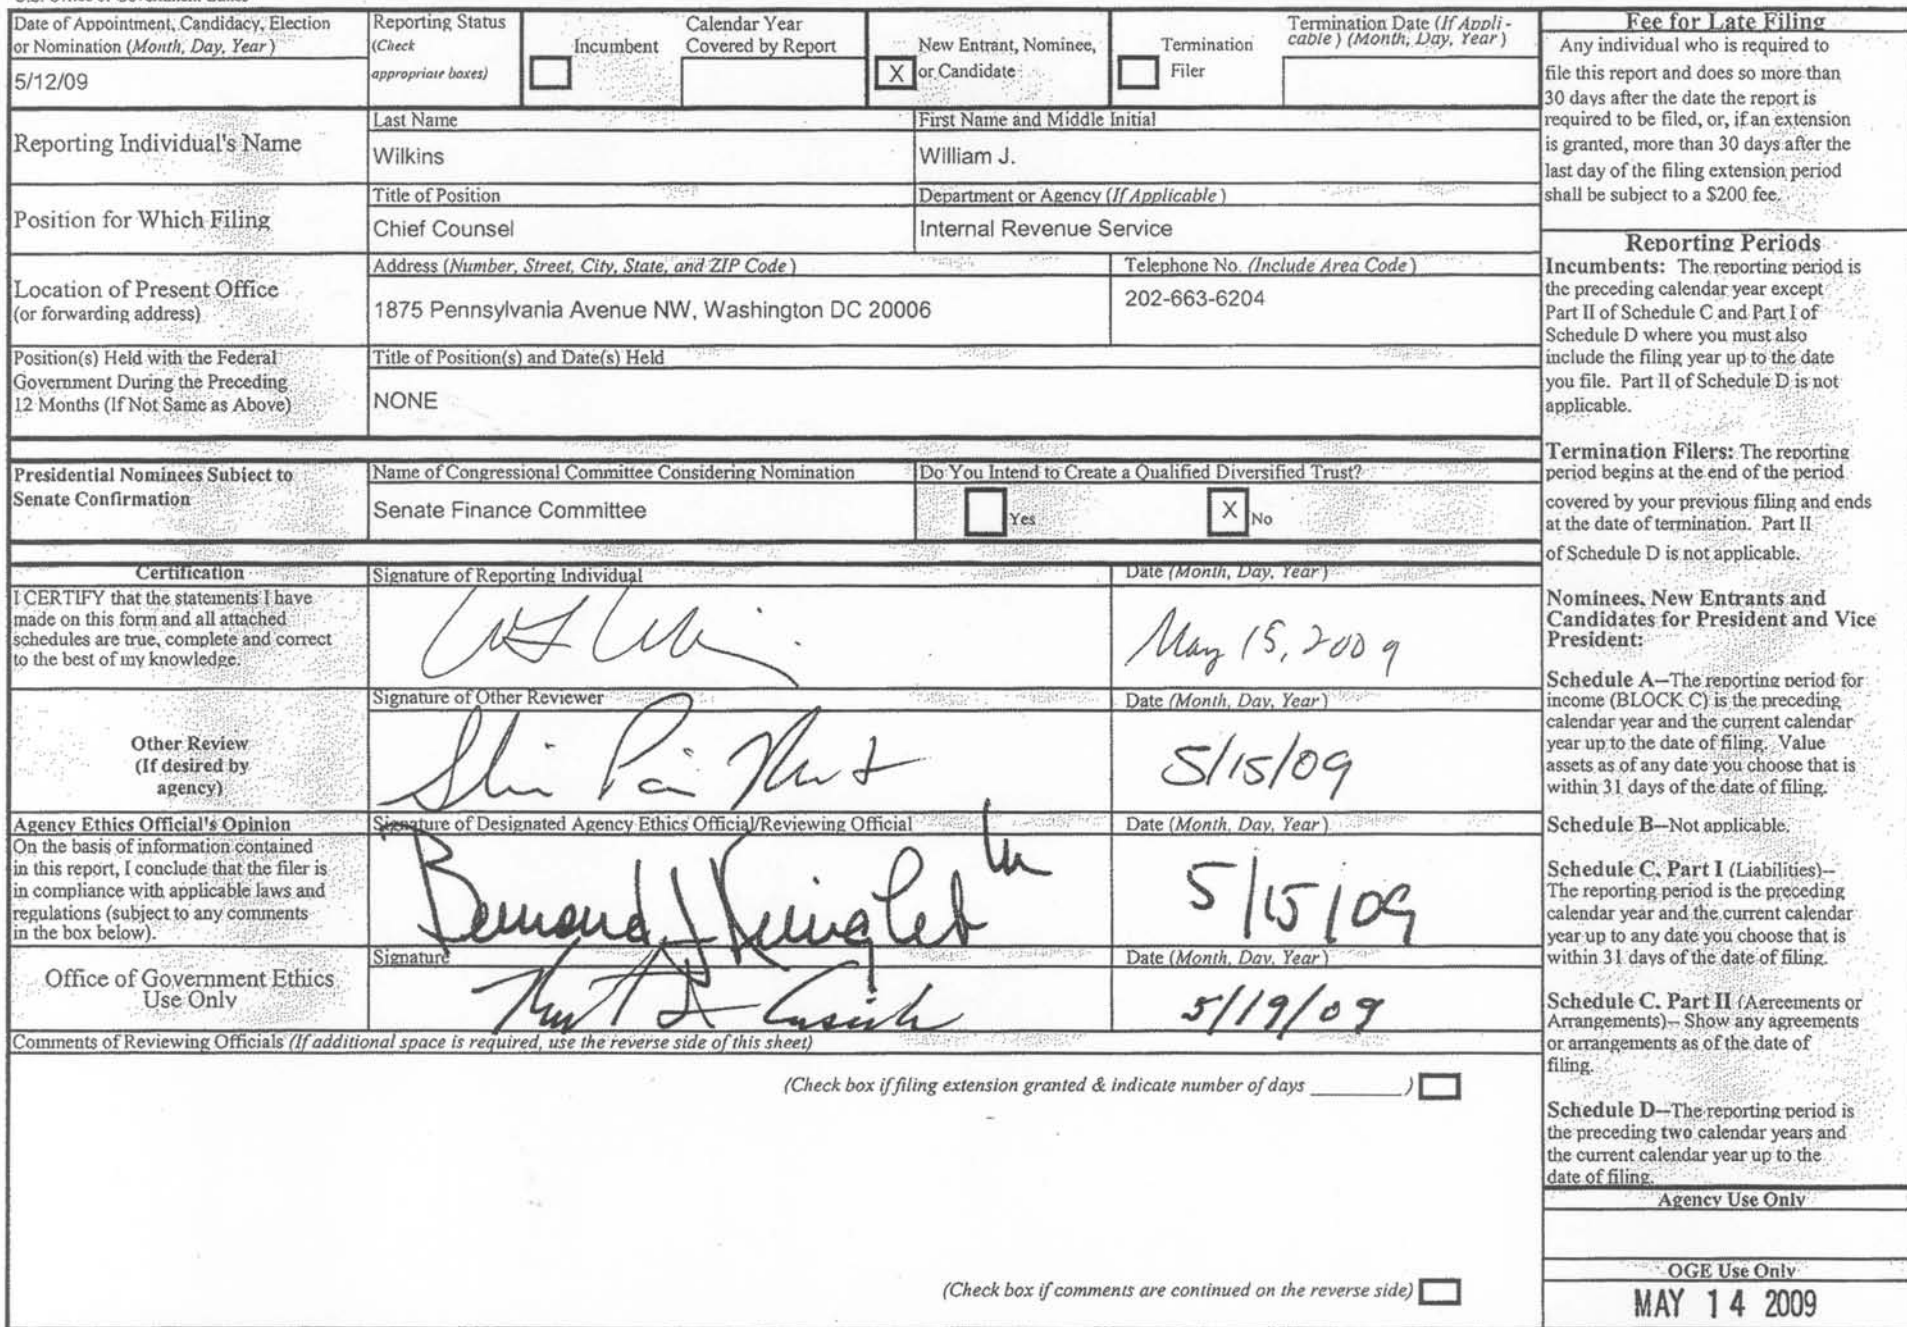 Date of Appointment, Candidacy, Election
or Nomination (Month, Day, Year)
5/12/09
Reporting Status
(Check
appropriate boxes)
Incumbent
Calendar Year
Covered by Report
X
New Entrant, Nominee,
or Candidate
Termination
Filer
Termination Date (If Appli-
cable) (Month, Day, Year)
Reporting Individual's Name
Last Name
Wilkins
First Name and Middle Initial
William J.
Position for Which Filing
Title of Position
Chief Counsel
Department or Agency (If Applicable)
Internal Revenue Service
Location of Present Office
(or forwarding address)
Address (Number, Street, City, State, and ZIP Code)
1875 Pennsylvania Avenue NW, Washington DC 20006
Telephone No. (Include Area Code)
202-663-6204
Position(s) Held with the Federal
Government During the Preceding
12 Months (If Not Same as Above)
Title of Position(s) and Date(s) Held
NONE
Presidential Nominees Subject to
Senate Confirmation
Name of Congressional Committee Considering Nomination
Senate Finance Committee
Do You Intend to Create a Qualified Diversified Trust?
Yes
X
No
Certification
I CERTIFY that the statements I have
made on this form and all attached
schedules are true, complete and correct
to the best of my knowledge.
Signature of Reporting Individual
Date (Month, Day, Year)
May 15, 2009
Other Review
(If desired by
agency)
Signature of Other Reviewer
Date (Month, Day, Year)
5/15/09
Agency Ethics Official's Opinion
On the basis of information contained
in this report, I conclude that the filer is
in compliance with applicable laws and
regulations (subject to any comments
in the box below).
Signature of Designated Agency Ethics Official/Reviewing Official
Date (Month, Day, Year)
5/15/09
Office of Government Ethics
Use Only
Signature
Date (Month, Day, Year)
5/19/09
Comments of Reviewing Officials (If additional space is required, use the reverse side of this sheet)
(Check box if filing extension granted & indicate number of days ________)
(Check box if comments are continued on the reverse side)
Fee for Late Filing
Any individual who is required to
file this report and does so more than
30 days after the date the report is
required to be filed, or, if an extension
is granted, more than 30 days after the
last day of the filing extension period
shall be subject to a $200 fee.
Reporting Periods
Incumbents: The reporting period is
the preceding calendar year except
Part II of Schedule C and Part I of
Schedule D where you must also
include the filing year up to the date
you file. Part II of Schedule D is not
applicable.
Termination Filers: The reporting
period begins at the end of the period
covered by your previous filing and ends
at the date of termination. Part II
of Schedule D is not applicable.
Nominees, New Entrants and
Candidates for President and Vice
President:
Schedule A--The reporting period for
income (BLOCK C) is the preceding
calendar year and the current calendar
year up to the date of filing. Value
assets as of any date you choose that is
within 31 days of the date of filing.
Schedule B--Not applicable.
Schedule C, Part I (Liabilities)--
The reporting period is the preceding
calendar year and the current calendar
year up to any date you choose that is
within 31 days of the date of filing.
Schedule C, Part II (Agreements or
Arrangements)-- Show any agreements
or arrangements as of the date of
filing.
Schedule D--The reporting period is
the preceding two calendar years and
the current calendar year up to the
date of filing.
Agency Use Only
OGE Use Only
MAY 14 2009